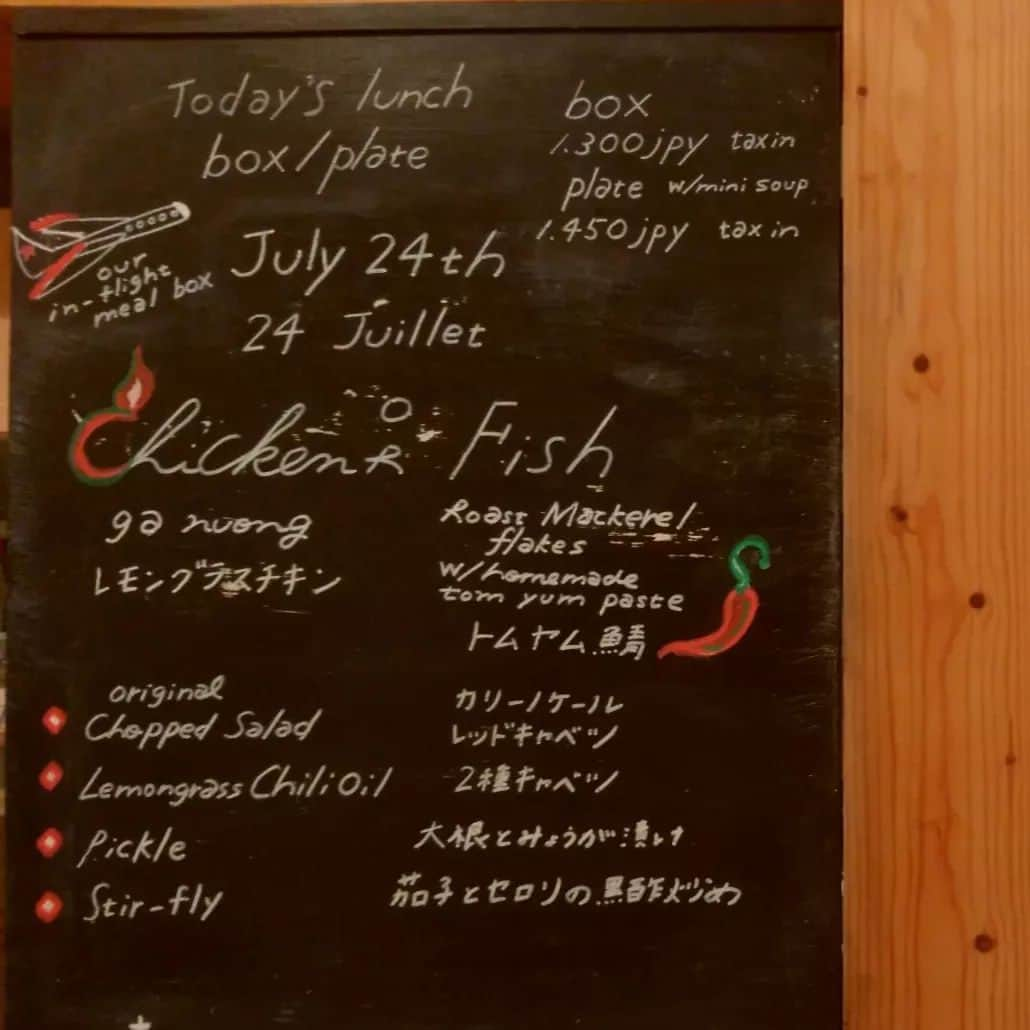 Today's lunch
box/plate
box
1.300jpy tax in
plate w/mini soup
1.450jpy tax in
our
in-flight
meal box
July 24th
24 Juillet
Chicken OR Fish
ga nuong
レモングラスチキン
Roast Mackerel
flakes
w/homemade
tom yum paste
トムヤム鯖
original
Chopped Salad
カリーノケール
レッドキャベツ
Lemongrass Chili Oil
2種キャベツ
Pickle
大根とみょうが漬け
Stir-fly
茄子とセロリの黒酢炒め